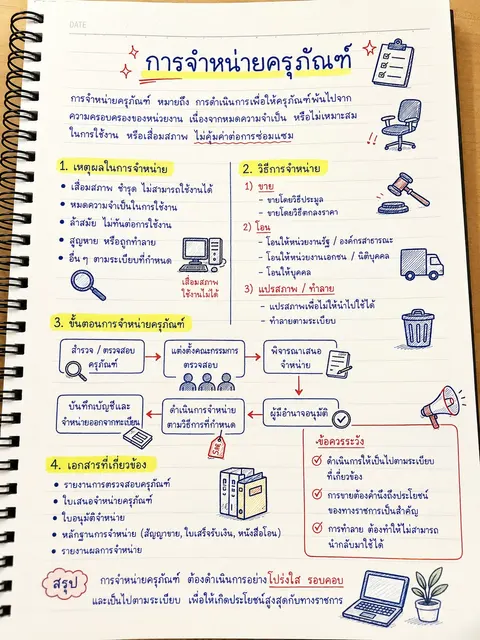 DATE
การจำหน่ายครุภัณฑ์
การจำหน่ายครุภัณฑ์ หมายถึง การดำเนินการเพื่อให้ครุภัณฑ์พ้นไปจาก
ความครอบครองของหน่วยงาน เนื่องจากหมดความจำเป็น หรือไม่เหมาะสม
ในการใช้งาน หรือเสื่อมสภาพ ไม่คุ้มค่าต่อการซ่อมแซม
!!
1. เหตุผลในการจำหน่าย
• เสื่อมสภาพ ชำรุด ไม่สามารถใช้งานได้
• หมดความจำเป็นในการใช้งาน
• ล้าสมัย ไม่ทันต่อการใช้งาน
• สูญหาย หรือถูกทำลาย
• อื่นๆ ตามระเบียบที่กำหนด
เสื่อมสภาพ
ใช้งานไม่ได้
2. วิธีการจำหน่าย
1) ขาย
- ขายโดยวิธีประมูล
- ขายโดยวิธีตกลงราคา
2) โอน
- โอนให้หน่วยงานรัฐ / องค์กรสาธารณะ
- โอนให้หน่วยงานเอกชน / นิติบุคคล
- โอนให้บุคคล
3) แปรสภาพ / ทำลาย
- แปรสภาพเพื่อไม่ให้นำไปใช้ได้
- ทำลายตามระเบียบ
3. ขั้นตอนการจำหน่ายครุภัณฑ์
สำรวจ / ตรวจสอบ
ครุภัณฑ์
แต่งตั้งคณะกรรมการ
ตรวจสอบ
พิจารณาเสนอ
จำหน่าย
ผู้มีอำนาจอนุมัติ
ดำเนินการจำหน่าย
ตามวิธีการที่กำหนด
SALE
บันทึกบัญชีและ
จำหน่ายออกจากทะเบียน
4. เอกสารที่เกี่ยวข้อง
• รายงานการตรวจสอบครุภัณฑ์
• ใบเสนอจำหน่ายครุภัณฑ์
• ใบอนุมัติจำหน่าย
• หลักฐานการจำหน่าย (สัญญาขาย, ใบเสร็จรับเงิน, หนังสือโอน)
• รายงานผลการจำหน่าย
•ข้อควรระวัง
ดำเนินการให้เป็นไปตามระเบียบ
ที่เกี่ยวข้อง
การขายต้องคำนึงถึงประโยชน์
ของทางราชการเป็นสำคัญ
การทำลาย ต้องทำให้ไม่สามารถ
นำกลับมาใช้ได้
สรุป
การจำหน่ายครุภัณฑ์ ต้องดำเนินการอย่างโปร่งใส รอบคอบ
และเป็นไปตามระเบียบ เพื่อให้เกิดประโยชน์สูงสุดกับทางราชการ